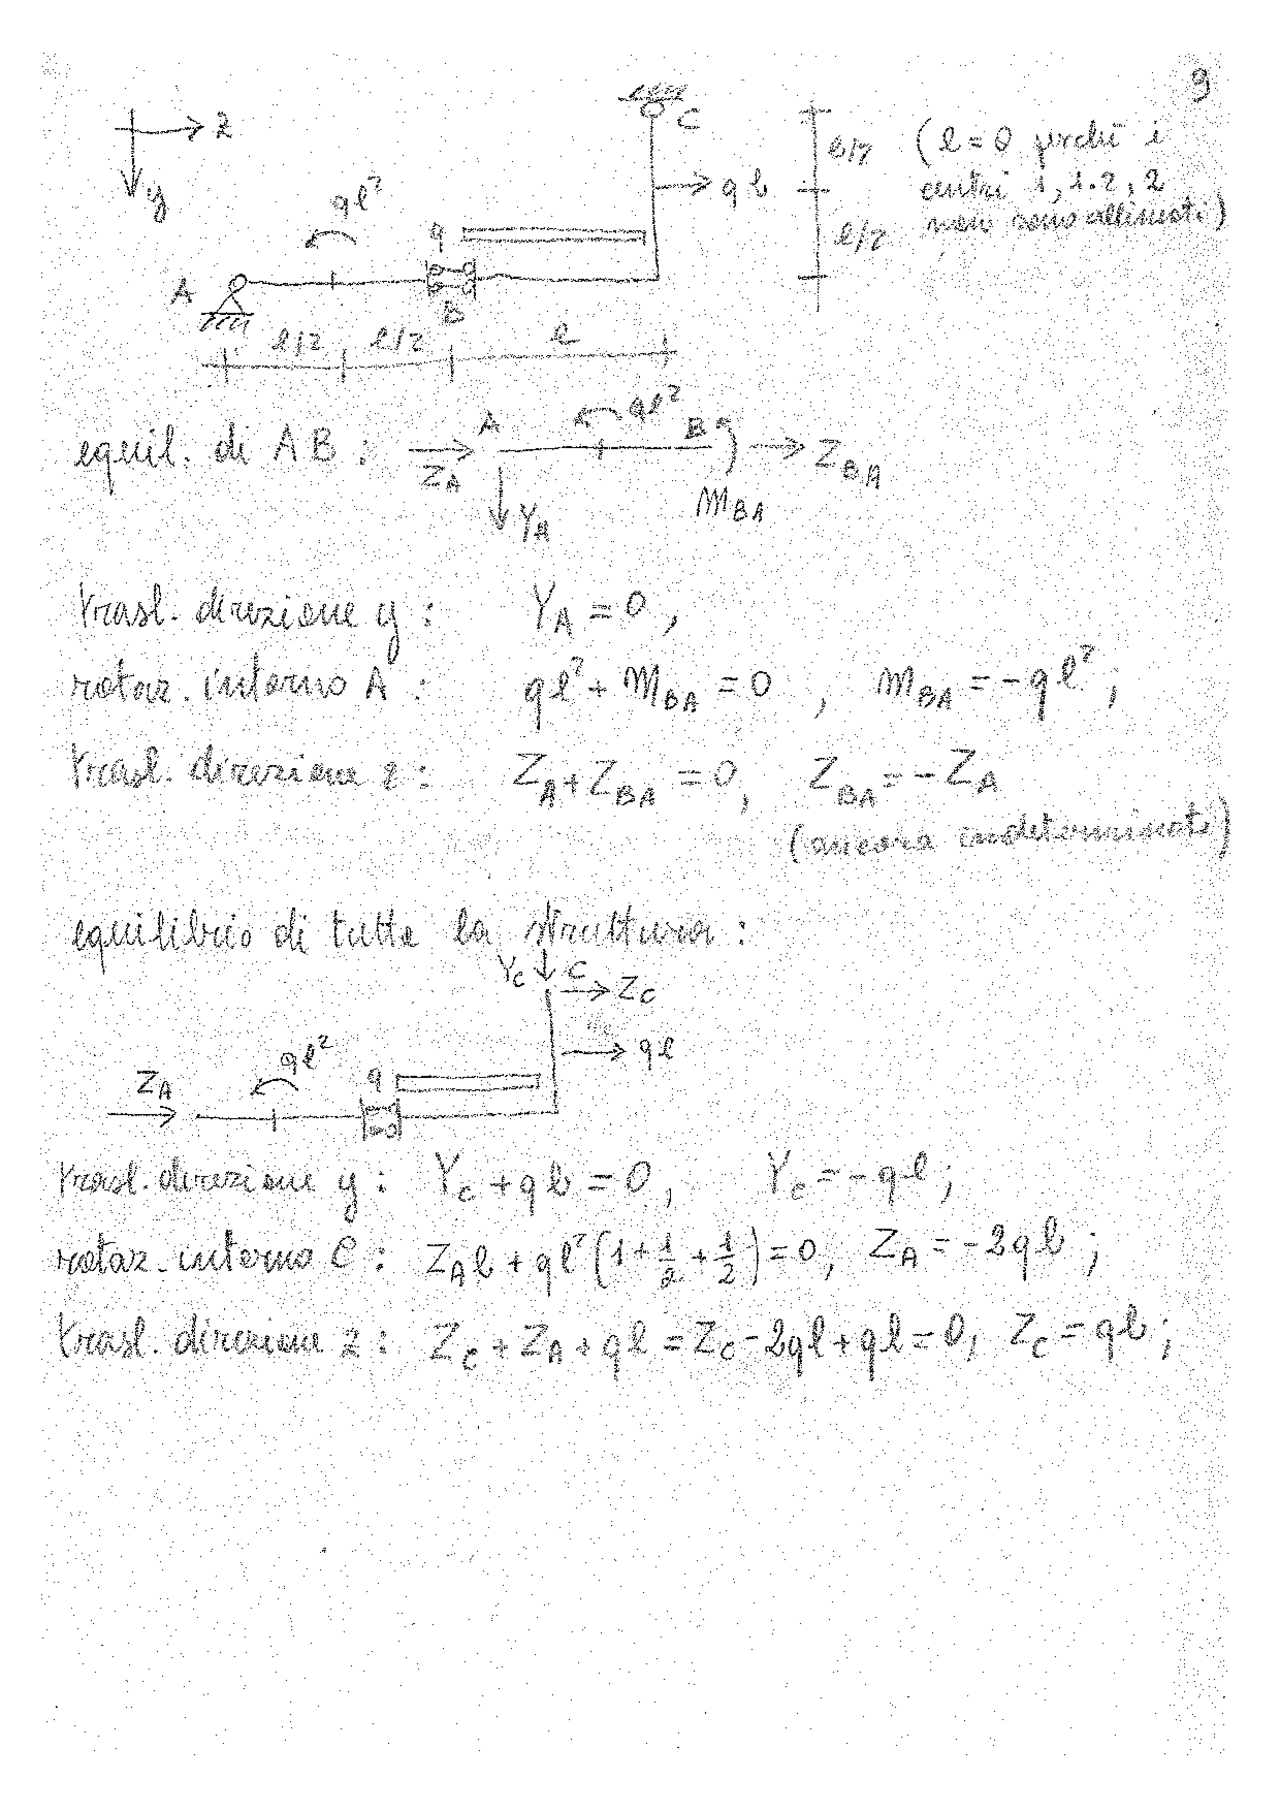 9
z
y
(l=0 perché i
centri 1, 1.2, 2
non sono allineati)
C
l/2
ql
ql²
q
l/2
A
B
l/2 l/2 l
equil. di AB : Z_A A ql² B Z_BA
Y_A m_BA
trasl. direzione y : Y_A = 0 ,
rotaz. intorno A : ql² + m_BA = 0 , m_BA = -ql² ;
trasl. direzione z : Z_A + Z_BA = 0, Z_BA = -Z_A
(ancora indeterminate)
equilibrio di tutta la struttura :
Y_C C Z_C
ql² ql
Z_A q
trasl. direzione y : Y_C + ql = 0, Y_C = -ql ;
rotaz. intorno C : Z_A l + ql² (1 + 1/2 + 1/2) = 0, Z_A = -2ql ;
trasl. direzione z : Z_C + Z_A + ql = Z_C - 2ql + ql = 0, Z_C = ql ;